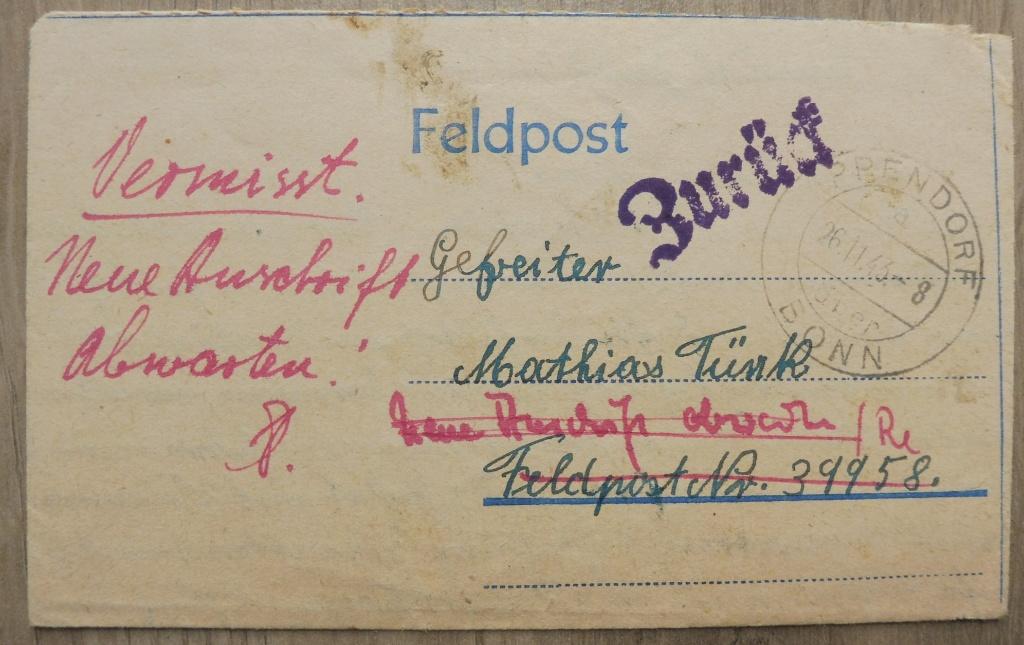 Feldpost
Zurück
Vermisst.
Neue Anschrift
Abwarten!
Gefreiter
Mathias Türk
Neue Anschrift abwarten / Re
Feldpost Nr. 39958.
PPENDORF
26.11.43-8
BONN